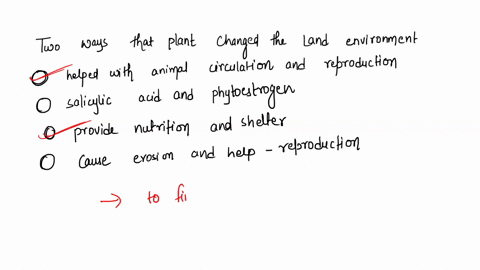 Two ways that plant changed the land environment
helped with animal circulation and reproduction
salicylic acid and phytoestrogen
provide nutrition and shelter
cause erosion and help - reproduction
→ to fi